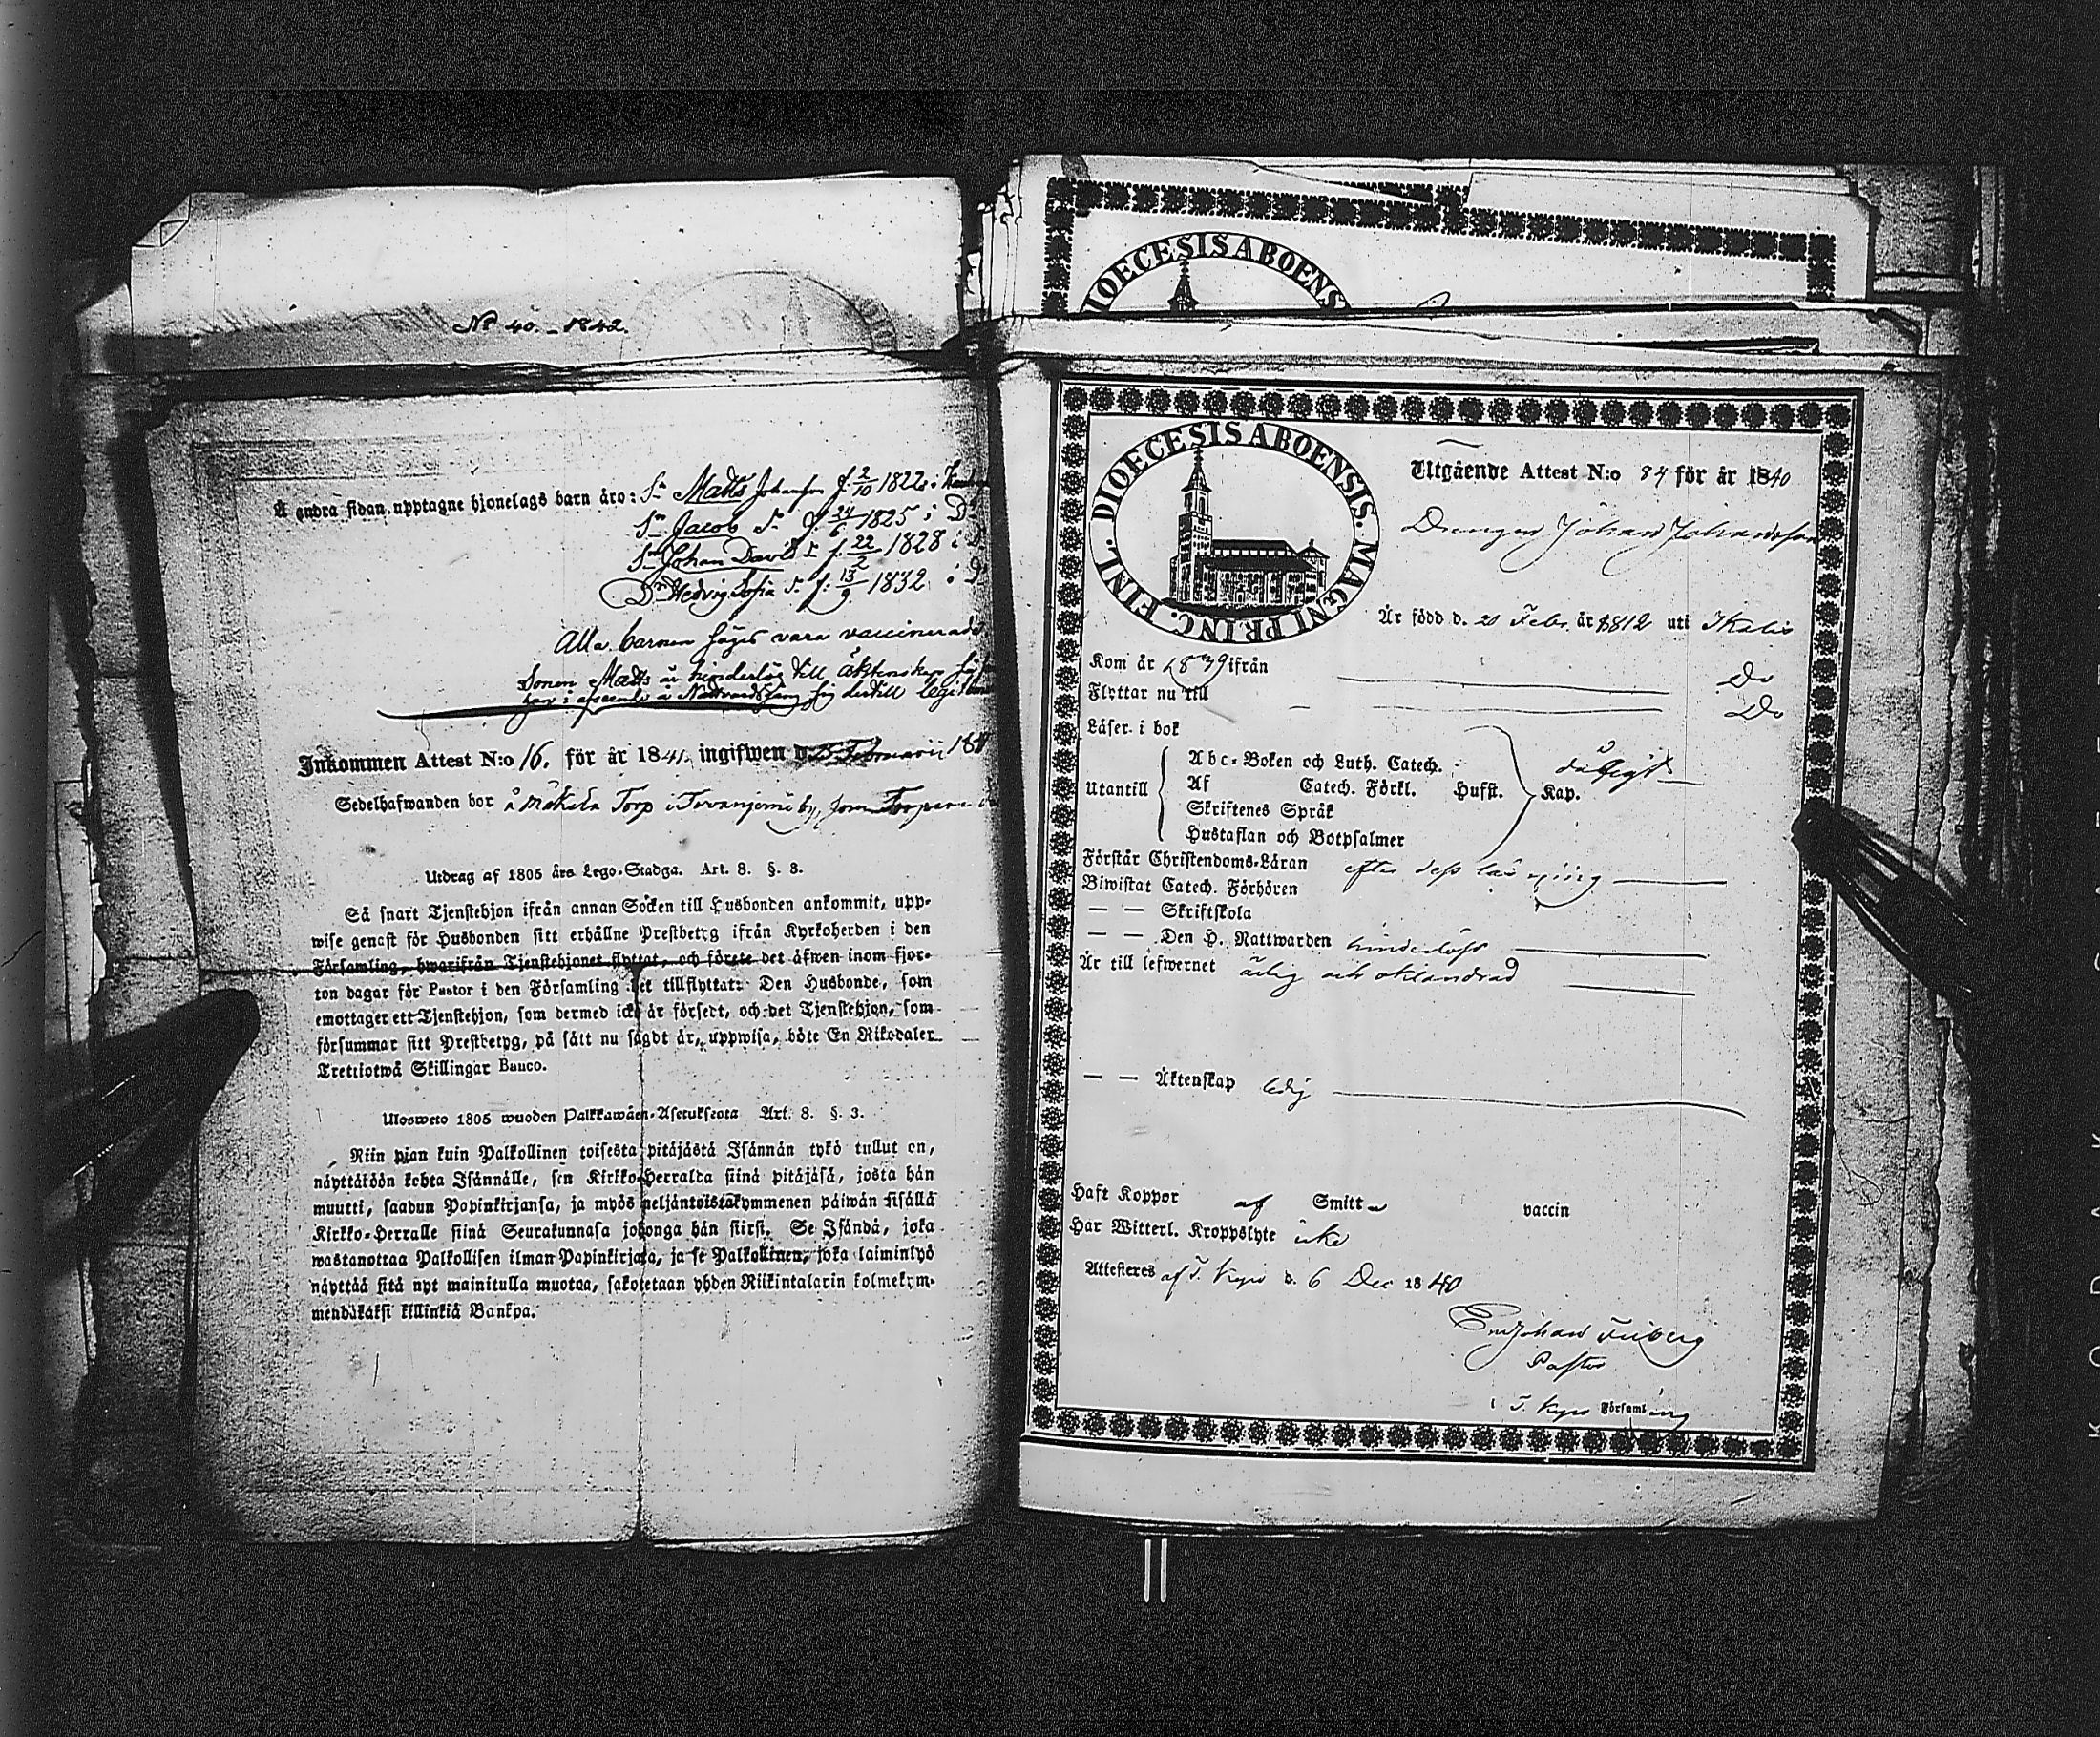 No 40. - 1842.
Å andra sidan upptagne hjonelags barn äro: Sn Matts Johansson f. 2/10 1822 i
Sn Jacob f 24/6 1825 i D
Sn Johan David f. 22/2 1828 i
Dr Hedvig Sofia f. 13/9 1832 i D
Alla barnen säges vara vaccinerade
Sonen Matts är hinderlös till äktenskap
Inkommen Attest N:o 16. för år 1841. ingifwen d. Februarii 184
Sedelhafwanden bor å Mäkelä Torp i by, som
Utdrag af 1805 års Lego-Stadga. Art. 8. §. 3.
Så snart Tjenstehjon ifrån annan Söcken till Husbonden ankommit, upp-
wise genast för Husbonden sitt erhållne Prestbetyg ifrån Kyrkoherden i den
Församling, hwarifrån Tjenstehjonet flyttat, och förete det äfwen inom fjor-
ton dagar för Pastor i den Församling det tillflyttat: Den Husbonde, som
emottager ett Tjenstehjon, som dermed icke är försedt, och det Tjenstehjon, som
försummar sitt Prestbetyg, på sätt nu sagdt är, uppwisa, böte En Riksdaler
Trettiotwå Skillingar Banco.
Ulosweto 1805 wuoden Palkkawäen-Asetuksesta Art. 8. §. 3.
Niin pian kuin Palkollinen toisesta pitäjästä Isännän tykö tullut on,
näyttäköön kohta Isännälle, sen Kirkko-Herralda siinä pitäjäsä, josta hän
muutti, saadun Popinkirjansa, ja myös neljäntoistakymmenen päiwän sisällä
Kirkko-Herralle siinä Seurakunnasa johonga hän siirsi. Se Isändä, joka
wastanottaa Palkollisen ilman Papinkirjata, ja se Palkollinen, joka laiminlyö
näyttää sitä nyt mainitulla muotoa, sakotetaan yhden Riikintalarin kolmekym-
mendäkaksi killinkiä Bankoa.
DIOECESIS ABOENS
DIOECESIS ABOENSIS. MAGNI PRINC. FINL.
Utgående Attest N:o 84 för år 1840
Drengen Johan Johansson
Är född d. 21 Febr. år 1812 uti Ikalis
Kom år 1839 ifrån Do
Flyttar nu till Do
Läser i bok
Abc-Boken och Luth. Catech.
Utantill Af Catech. Förkl. Hufst. Kap.
Skriftenes Språk
Hustaflan och Botpsalmer
Förstår Christendoms-Läran efter dess
Biwistat Catech. Förhören
— — Skriftskola
— — Den H. Nattwarden hinderlöst
Är till lefwernet ärlig och oklandrad
— — Äktenskap ledig
Haft Koppor af Smitta vaccin
Har Witterl. Kroppslyte icke
Attesteres af T. Kyro d. 6 Dec 1840
Johan Friberg
Pastor
i T. Kyro Församling
KODAK